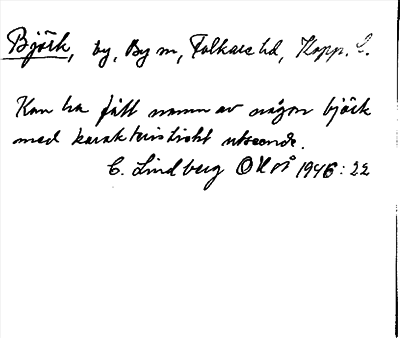 Björk, by, By sn, Folkare hd, Kopp. l.
Kan ha fått namn av någon björk
med karakteristiskt utseende.
C. Lindberg OUÅ 1946:22